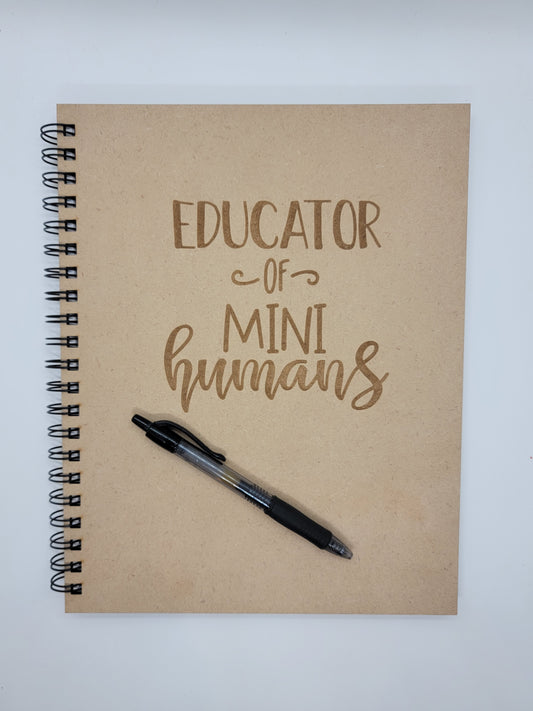 EDUCATOR
OF
MINI
humans